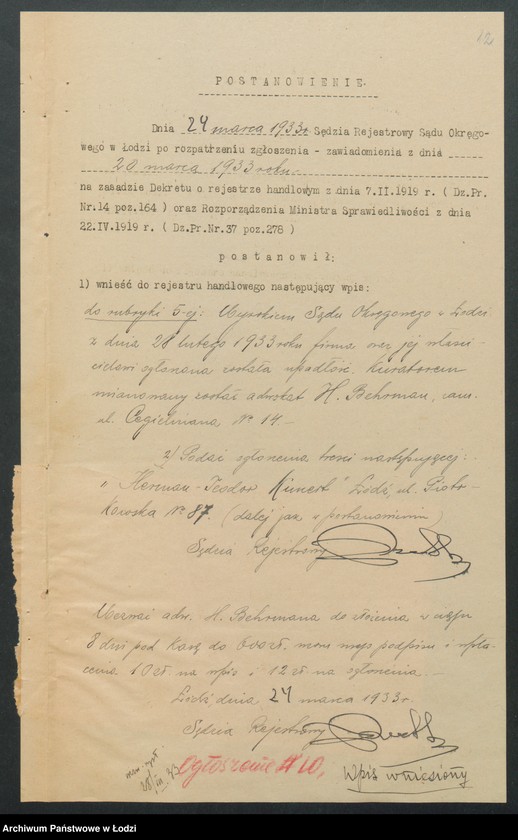 12
POSTANOWIENIE.
Dnia 24 marca 1933 r. Sędzia Rejestrowy Sądu Okręgo-
wego w Łodzi po rozpatrzeniu zgłoszenia - zawiadomienia z dnia
20 marca 1933 roku.
na zasadzie Dekretu o rejestrze handlowym z dnia 7.II.1919 r. ( Dz.Pr.
Nr.14 poz.164 ) oraz Rozporządzenia Ministra Sprawiedliwości z dnia
22.IV.1919 r. ( Dz.Pr.Nr.37 poz.278 )
postanowił:
1) wnieść do rejestru handlowego następujący wpis:
do rubryki 5-ej: Wyrokiem Sądu Okręgowego w Łodzi
z dnia 28 lutego 1933 roku firma oraz jej właści-
cielowi ogłoszona została upadłość. Kuratorem
mianowany został adwokat H. Behrman, zam.
ul. Cegielniana № 14.-
2) Podać ogłoszenia treści następującej:
"Herman-Teodor" Łódź, ul. Piotr-
kowska № 87. (dalej jak w postanowieniu)
Sędzia Rejestrowy
Wezwać adw. H. Behrmana do złożenia w ciągu
8 dni pod karą do 600 zł. podpisu i wpła-
cenia 10 zł. na wpis i 12 zł. na ogłoszenia.-
Łódź dnia 24 marca 1933 r.
Sędzia Rejestrowy
28/III 33
Ogłoszenie № 10,
Wpis wniesiony
Archiwum Państwowe w Łodzi